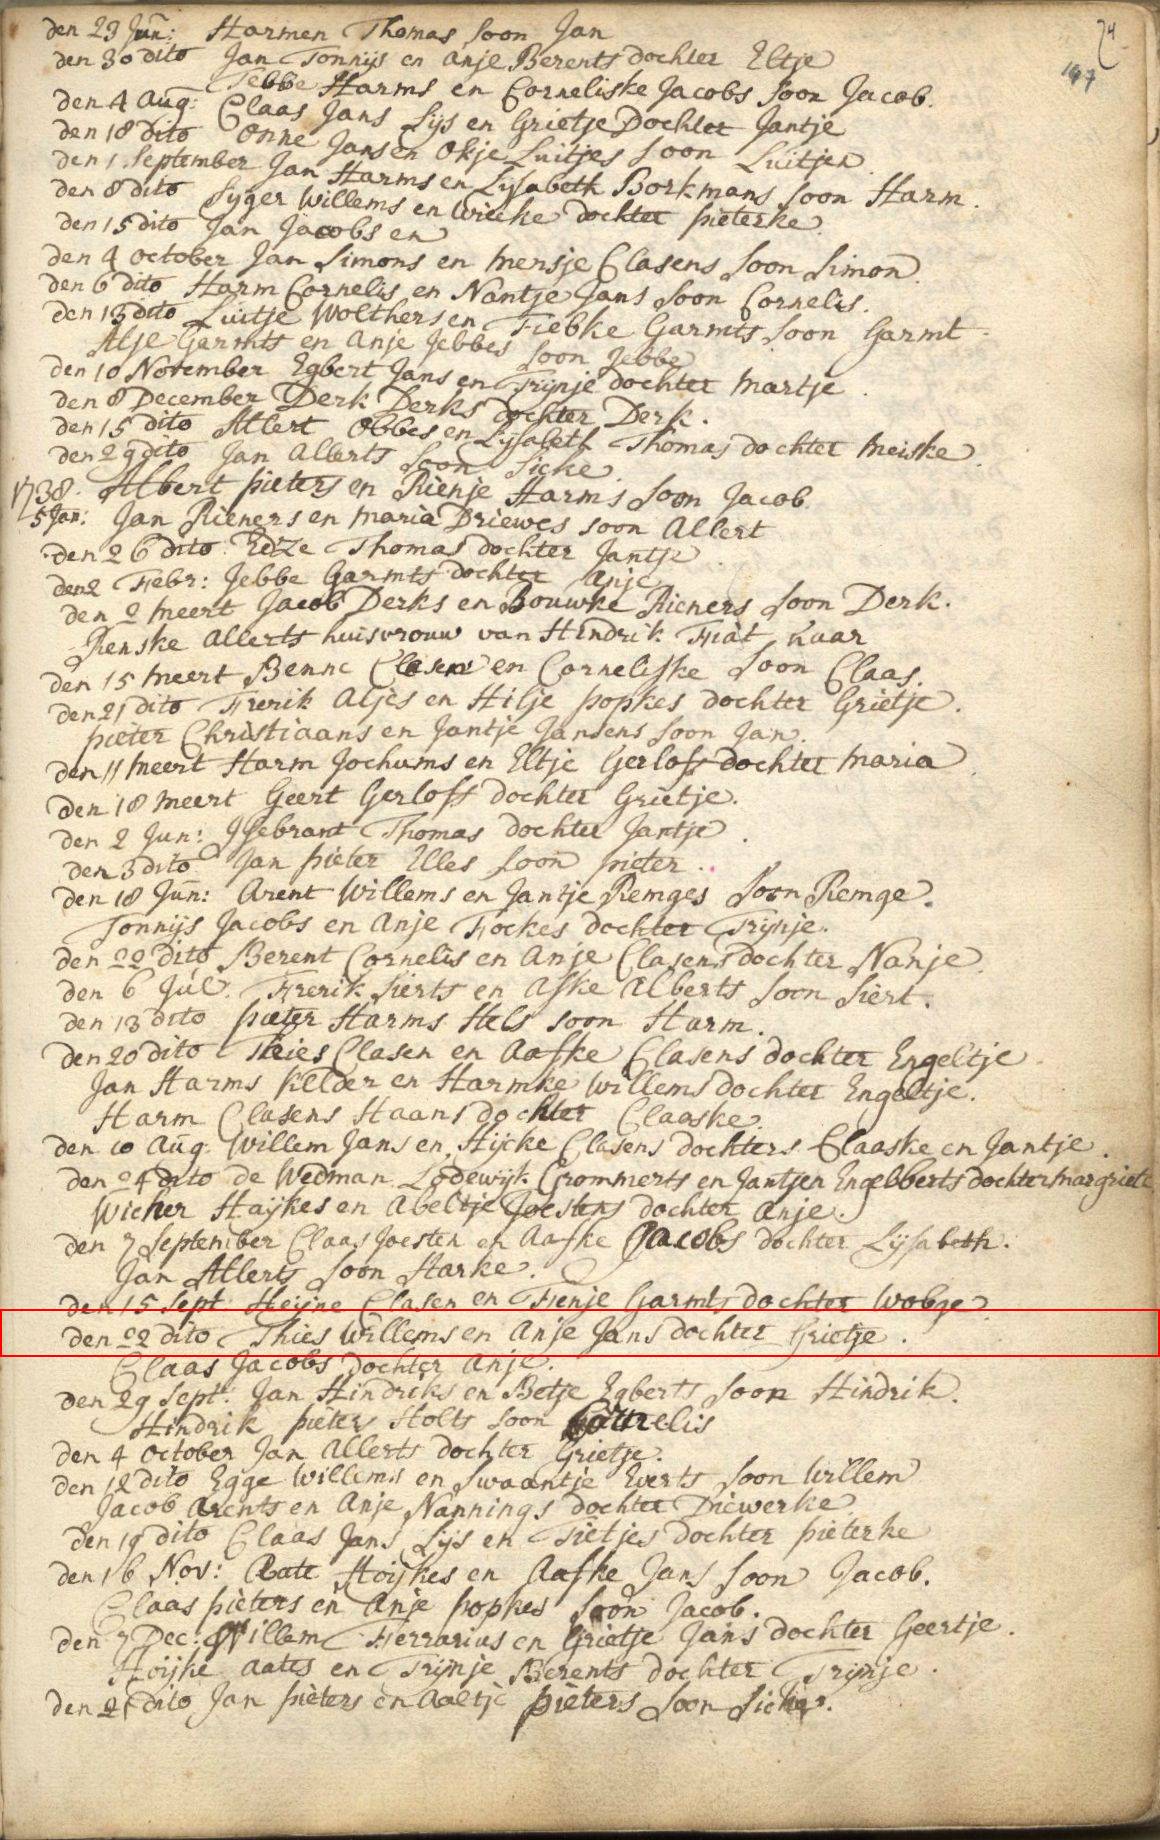 74
147
den 23 Jun: Harmen Thomas soon Jan
den 30 dito Jan Tonnijs en Anje Berents dochter Eltje
Tebbe Harms en Corneliske Jacobs soon Jacob.
den 4 Aug: Claas Jans Lijs en Grietje Dochter Jantje
den 18 dito Onne Jans en Okje Luitjes soon Luitjen
den 1 September Jan Harms en Lijsabeth Borkmans soon Harm.
den 8 dito Sijger Willems en Wiecke dochter pieterke
den 15 dito Jan Jacobs en
den 4 october Jan Simons en mensje Clasens soon Simon
den 6 dito Harm Cornelis en Nantje Jans soon Cornelis.
den 13 dito Luitje Wolthers en Fiebke Garmts soon Garmt
Atje Garmts en Anje Jebbes soon Jebbe
den 10 November Egbert Jans en Trijnje dochter martje
den 8 December Derk Derks dochter Derk.
den 15 dito Allert Obbes en Lijsabeth Thomas dochter meiske
den 29 dito Jan Allerts soon Sicke
1738. Albert pieters en Rienje Harms soon Jacob
5 Jan: Jan Rieners en maria Driewes soon Allert
den 26 dito Edze Thomas dochter Jantje
den 2 Febr: Jebbe Garmts dochter Anje
den 2 meert Jacob Derks en Bouwke Rieners soon Derk.
Renske Allerts huisvrouw van Hindrik Fiat haar
den 15 meert Benne Clasen en Corneliske soon Claas.
den 21 dito Frerik Aljes en Hilje popkes dochter Grietje.
pieter Christiaans en Jantje Jansens soon Jan.
den 11 meert Harm Jochums en Eltje Gerlofs dochter maria
den 18 meert Geert Gerloff dochter Grietje.
den 2 Jun: IJsebrant Thomas dochter Jantje
den 3 dito Jan pieter Elles soon pieter.
den 18 Jun: Arent Willems en Jantje Remges soon Remge.
Tonnijs Jacobs en Anje Fockes dochter Trijnje.
den 22 dito Berent Cornelis en Anje Clasens dochter Nanje
den 6 Jul. Frerik Sierts en Afke Alberts soon Siert.
den 13 dito pieter Harms Hels soon Harm.
den 20 dito Theies Clasen en Aafke Clasens dochter Engeltje
Jan Harms Kelder en Harmke Willems dochter Engeltje.
Harm Clasens Haans dochter Claaske
den 10 Aug Willem Jans en Hijcke Clasens dochters Claaske en Jantje.
den 24 dito de Wedman Lodewijk Crommerts en Jantjen Engelberts dochter margriete
Wicher Haijkes en Abeltje Joestens dochter Anje.
den 7 September Claas Joesten en Aafke Jacobs dochter Lijsabeth.
Jan Allerts soon Harke.
den 15 Sept Heijne Clasen en Fenje Garmts dochter Wobge
den 22 dito Thies Willems en Anje Jans dochter Grietje.
Claas Jacobs dochter Anje.
den 29 Sept. Jan Hindriks en Betje Egberts soon Hindrik.
Hindrik pieter Holts soon Cornelis
den 4 October Jan Allerts dochter Grietje.
den 12 dito Egge Willems en Swaantje Everts soon Willem
Jacob Arents en Anje Nannings dochter Diewerke
den 19 dito Claas Jans Lijs en Tietjes dochter pieterke
den 16 Nov: Aate Hoijkes en Aafke Jans soon Jacob.
Claas pieters en Anje popkes soon Jacob.
den 7 Dec: Willem Ferrarius en Grietje Jans dochter Geertje.
Hoijke Aates en Trijnje Berents dochter Trijnje.
den 21 dito Jan pieters en Aaltje pieters soon